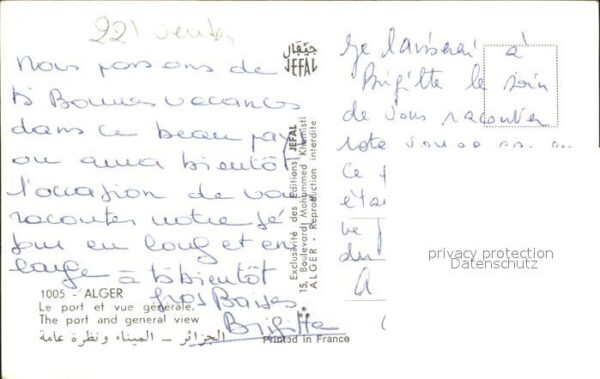 221 ventes
Nous passons de
tb Bonnes vacances
dans ce beau pays
on aura bientôt
l'occasion de vous
raconter notre sé
jour en long et en
large à tbbientôt
Gros Baises
Brigitte
1005 - ALGER
Le port et vue générale.
The port and general view
الجزائر – الميناء ونظرة عامة
جيفال
JEFAL
Exclusivité des Editions JEFAL
15, Boulevard Mohammed Khemisti
ALGER - Reproduction interdite
Printed in France
Je laisserai à
Brigitte le soin
de vous raconter
ce
du
A
privacy protection
Datenschutz